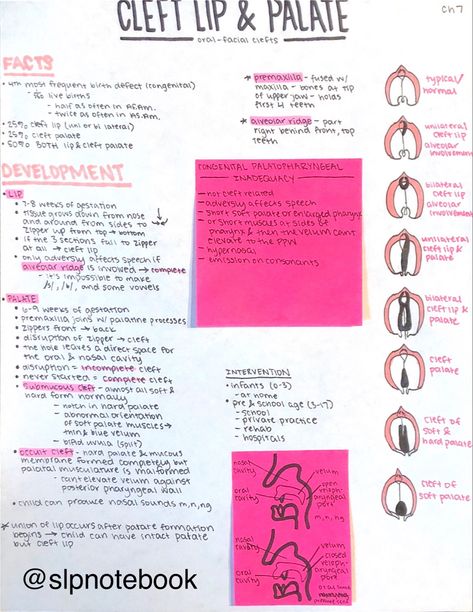 CLEFT LIP & PALATE
oral-facial clefts
Ch 7
FACTS
• 4th most frequent birth defect (congenital)
live births
- half as often in Af.Am.
- twice as often in As.Am.
• 25% cleft lip (uni or bi lateral)
• 25% cleft palate
• 50% BOTH lip & cleft palate
* premaxilla - fused w/
maxilla - bones at tip
of upper jaw - holds
first 4 teeth
* alveolar ridge - part
right behind front, top
teeth
DEVELOPMENT
• LIP
• 7-8 weeks of gestation
• tissue grows down from nose
and around from sides to
zipper up from top → bottom
• if the 3 sections fail to zipper
at all → cleft lip
• only adversely affects speech if
alveolar ridge is involved → complete
- it's impossible to make
/s/, /w/, and some vowels
• PALATE
• 6-9 weeks of gestation
• premaxilla joins w/ palatine processes
• zippers front → back
• disruption of zipper → cleft
• the hole leaves a direct space for
the oral & nasal cavity
• disruption = incomplete cleft
• never started = complete cleft
• submucous cleft - almost all soft &
hard form normally
- notch in hard palate
- abnormal orientation
of soft palate muscles →
thin & blue velum
- bifid uvula (split)
• occult cleft - hard palate & mucous
membrane formed completely but
palatal musculature is malformed
- can't elevate velum against
posterior pharyngeal wall
• child can produce nasal sounds m, n, ng
* union of lip occurs after palate formation
begins → child can have intact palate
but cleft lip
CONGENITAL PALATOPHARYNGEAL
INADEQUACY
- not cleft related
- adversely affects speech
- short soft palate or enlarged pharynx
or short muscles of sides of
pharynx & then the velum can't
elevate to the PPW
- hypernasal
- emission on consonants
INTERVENTION
• infants (0-3)
- at home
• pre & school age (3-17)
- school
- private practice
- rehab
- hospitals
nasal
cavity
oral
cavity
velum
open
pharyngeal
port
m, n, ng
nasal
cavity
oral
cavity
velum
closed
pharyngeal
port
typical/
normal
unilateral
cleft lip &
alveolar
involvement
bilateral
cleft lip &
alveolar
involvement
unilateral
cleft lip &
palate
bilateral
cleft lip &
palate
cleft
palate
cleft of
soft & hard
palate
cleft of
soft palate
@slpnotebook